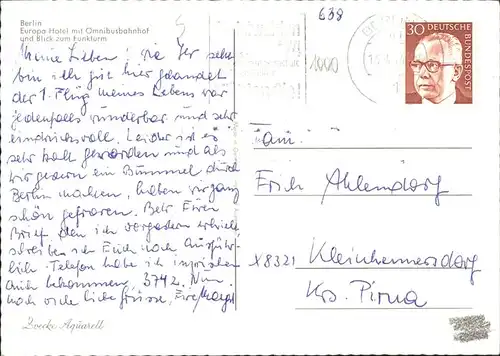 Berlin
Europa Hotel mit Omnibusbahnhof
und Blick zum Funkturm
Meine Lieben! Wie Ihr seht
bin ich gut hier gelandet
der 1. Flug meines Lebens war
jedenfalls wunderbar und sehr
eindrucksvoll. Leider ist es
sehr kalt geworden und als
wir gestern ein Bummel durch
Berlin machten, haben wir ganz
schön gefroren. Betr. Euren
Brief den ich vorgestern erhielt,
schreibe ich Euch noch ausführ-
lich. Telefon habe ich inzwischen
auch bekommen, 3742. Nun
noch viele liebe Grüsse, Eure
Zwecko Aquarell
638
1000
30 DEUTSCHE
BUNDESPOST
Fam.
Erich Ahlendorf
X8321 Kleinhennersdorf
Krs. Pirna